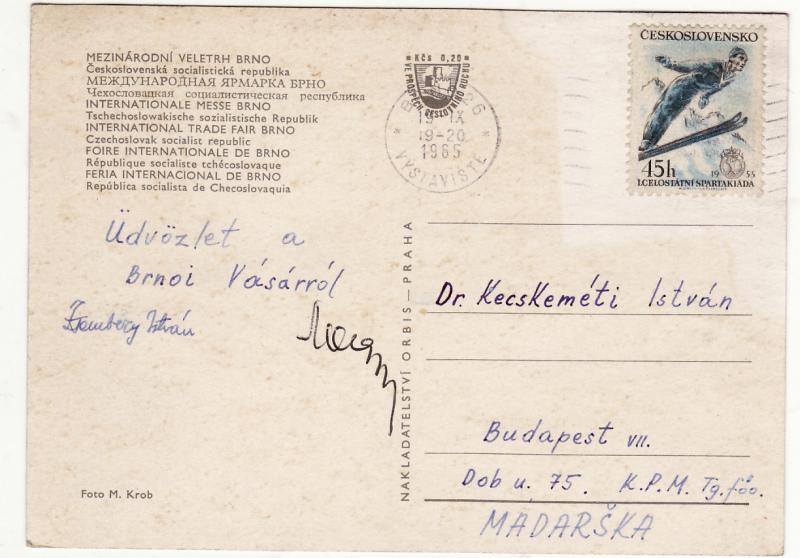 MEZINÁRODNÍ VELETRH BRNO
Československá socialistická republika
МЕЖДУНАРОДНАЯ ЯРМАРКА БРНО
Чехословацкая социалистическая республика
INTERNATIONALE MESSE BRNO
Tschechoslowakische sozialistische Republik
INTERNATIONAL TRADE FAIR BRNO
Czechoslovak socialist republic
FOIRE INTERNATIONALE DE BRNO
République socialiste tchécoslovaque
FERIA INTERNACIONAL DE BRNO
República socialista de Checoslovaquia
Kčs 0,20
VE PROSPĚCH CESTOVNÍHO RUCHU
19 IX
19-20
1965
* VÝSTAVIŠTĚ *
ČESKOSLOVENSKO
45h
1955
I.CELOSTÁTNÍ SPARTAKIÁDA
Üdvözlet a
Brnoi Vásárról
István
NAKLADATELSTVÍ ORBIS — PRAHA
Dr. Kecskeméti István
Budapest VII.
Dob u. 75. K.P.M. Tg.főo.
MADARŠKA
Foto M. Krob